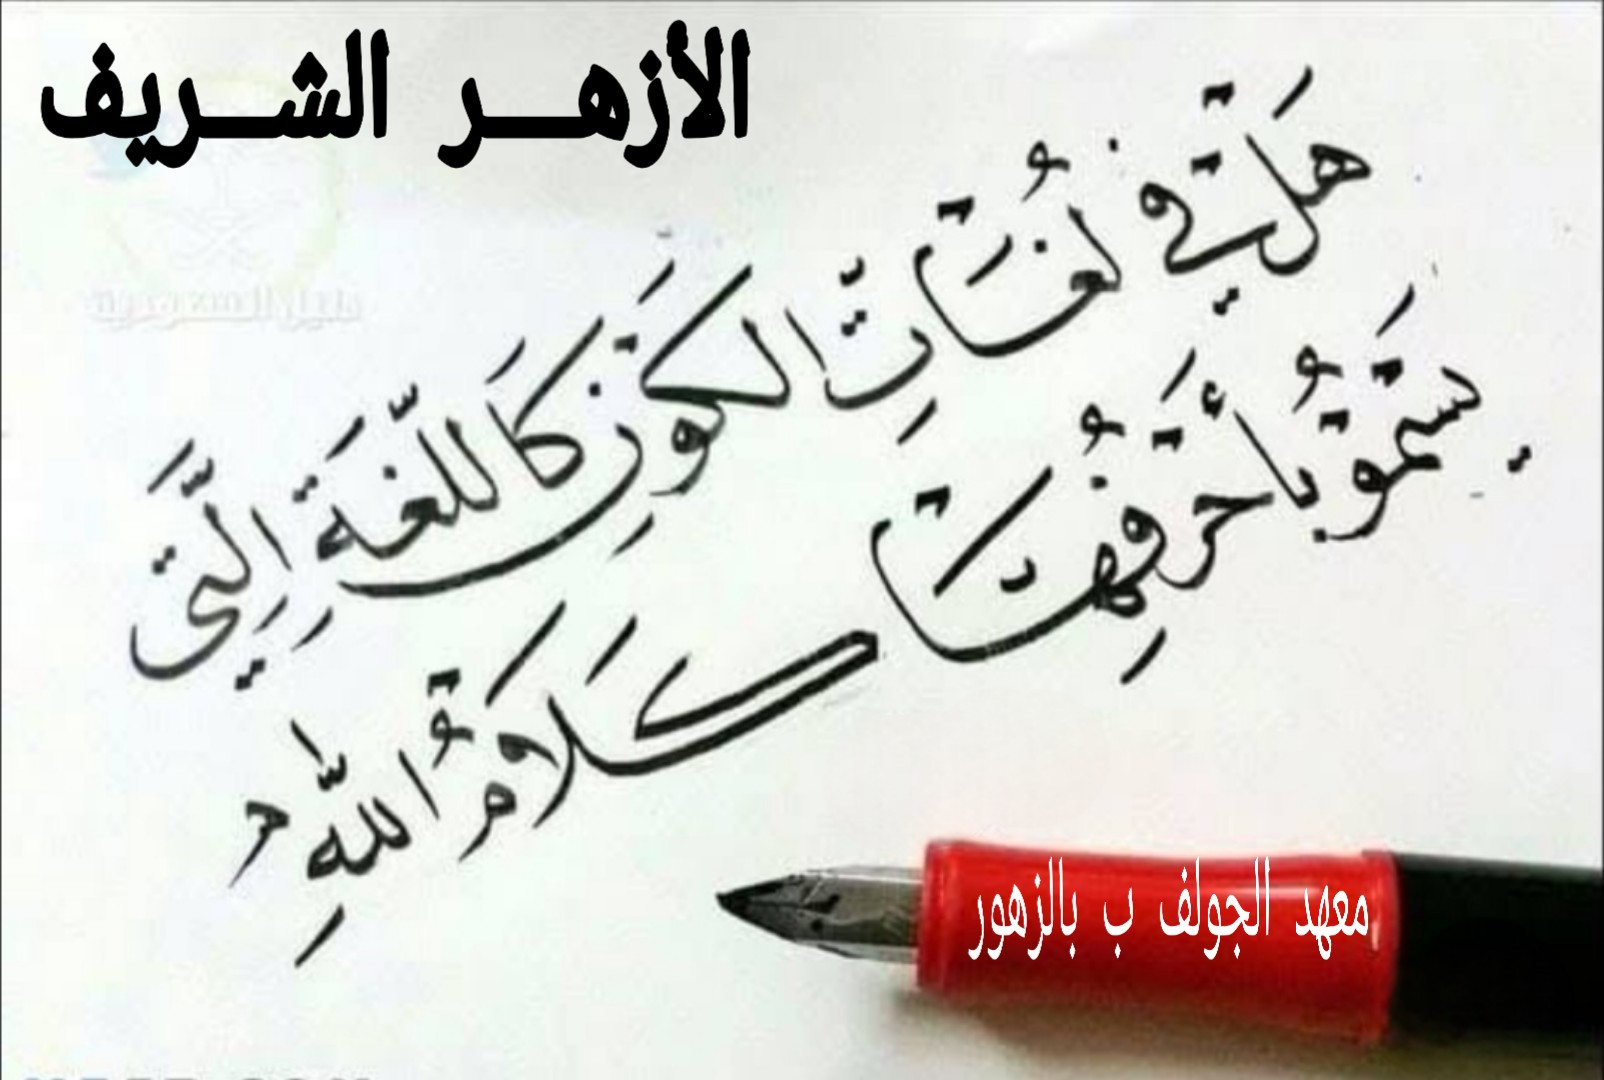 الأزهر الشريف
هَلْ فِي لُغَاتِ الكَوْنِ كَاللُّغَةِ الَّتِي
يَسْمُو بِأَحْرُفِهَا كَلَامُ اللَّهِ
معهد الجولف ب بالزهور
دليل السعودية